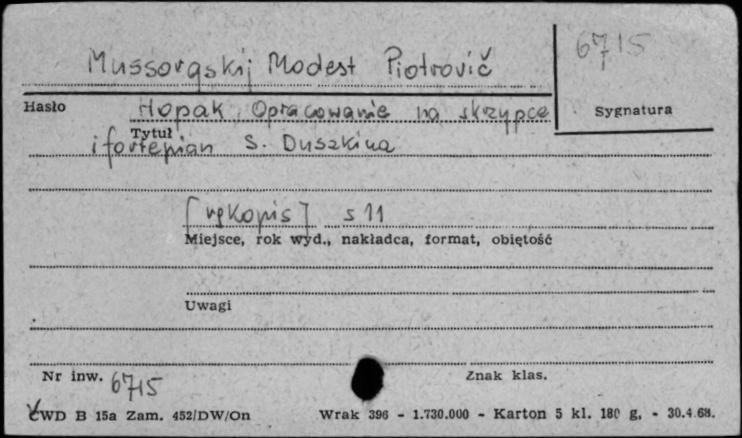 Mussorgskij Modest Piotrovič
6715
Hasło
Hopak. Opracowanie na skrzypce
Sygnatura
Tytuł
i fortepian S. Duszkina
[rękopis] s 11
Miejsce, rok wyd., nakładca, format, obiętość
Uwagi
Nr inw. 6715
Znak klas.
CWD B 15a Zam. 452/DW/On Wrak 396 - 1.730.000 - Karton 5 kl. 180 g. - 30.4.68.